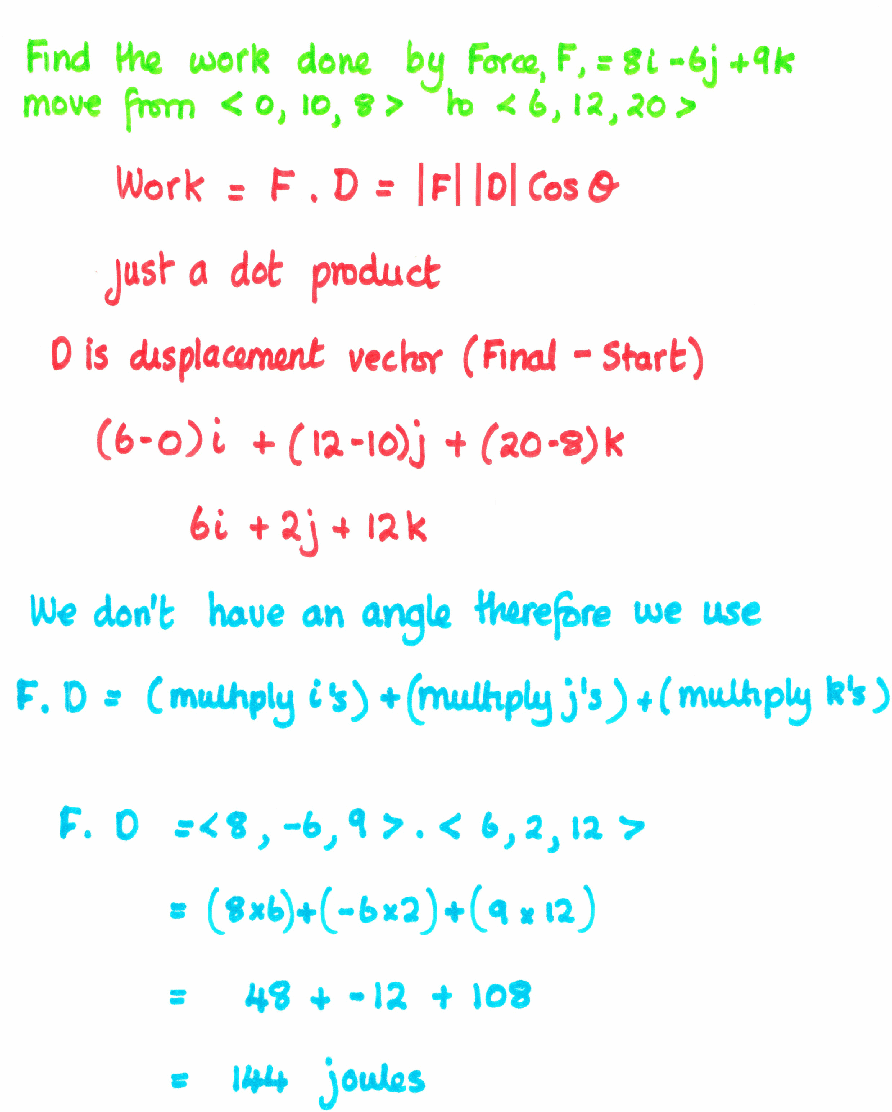 Find the work done by Force, F, = 8i - 6j + 9k
move from < 0, 10, 8 > to < 6, 12, 20 >
Work = F . D = |F| |D| Cos θ
just a dot product
D is displacement vector (Final - Start)
(6-0)i + (12-10)j + (20-8)k
6i + 2j + 12k
We don't have an angle therefore we use
F. D = (multiply i's) + (multiply j's) + (multiply k's)
F. D = < 8, -6, 9 > . < 6, 2, 12 >
= (8x6)+(-6x2)+(9 x 12)
= 48 + -12 + 108
= 144 joules